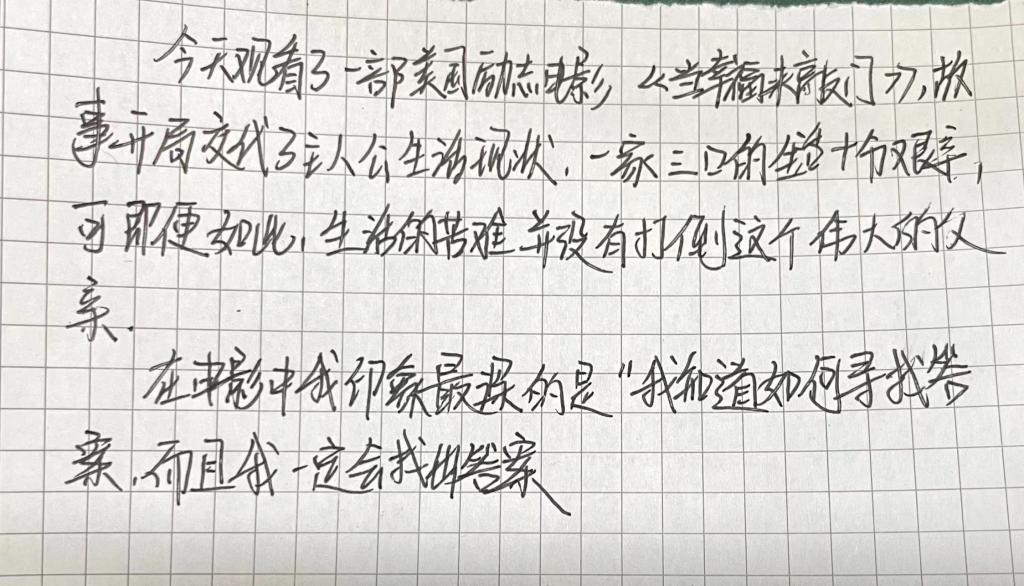 今天观看了一部美国励志电影《当幸福来敲门》,故
事开局交代了主人公生活现状.一家三口的生活十分艰辛,
可即便如此,生活的苦难并没有打倒这个伟大的父
亲.
在电影中我印象最深的是“我知道如何寻找答
案,而且我一定会找出答案